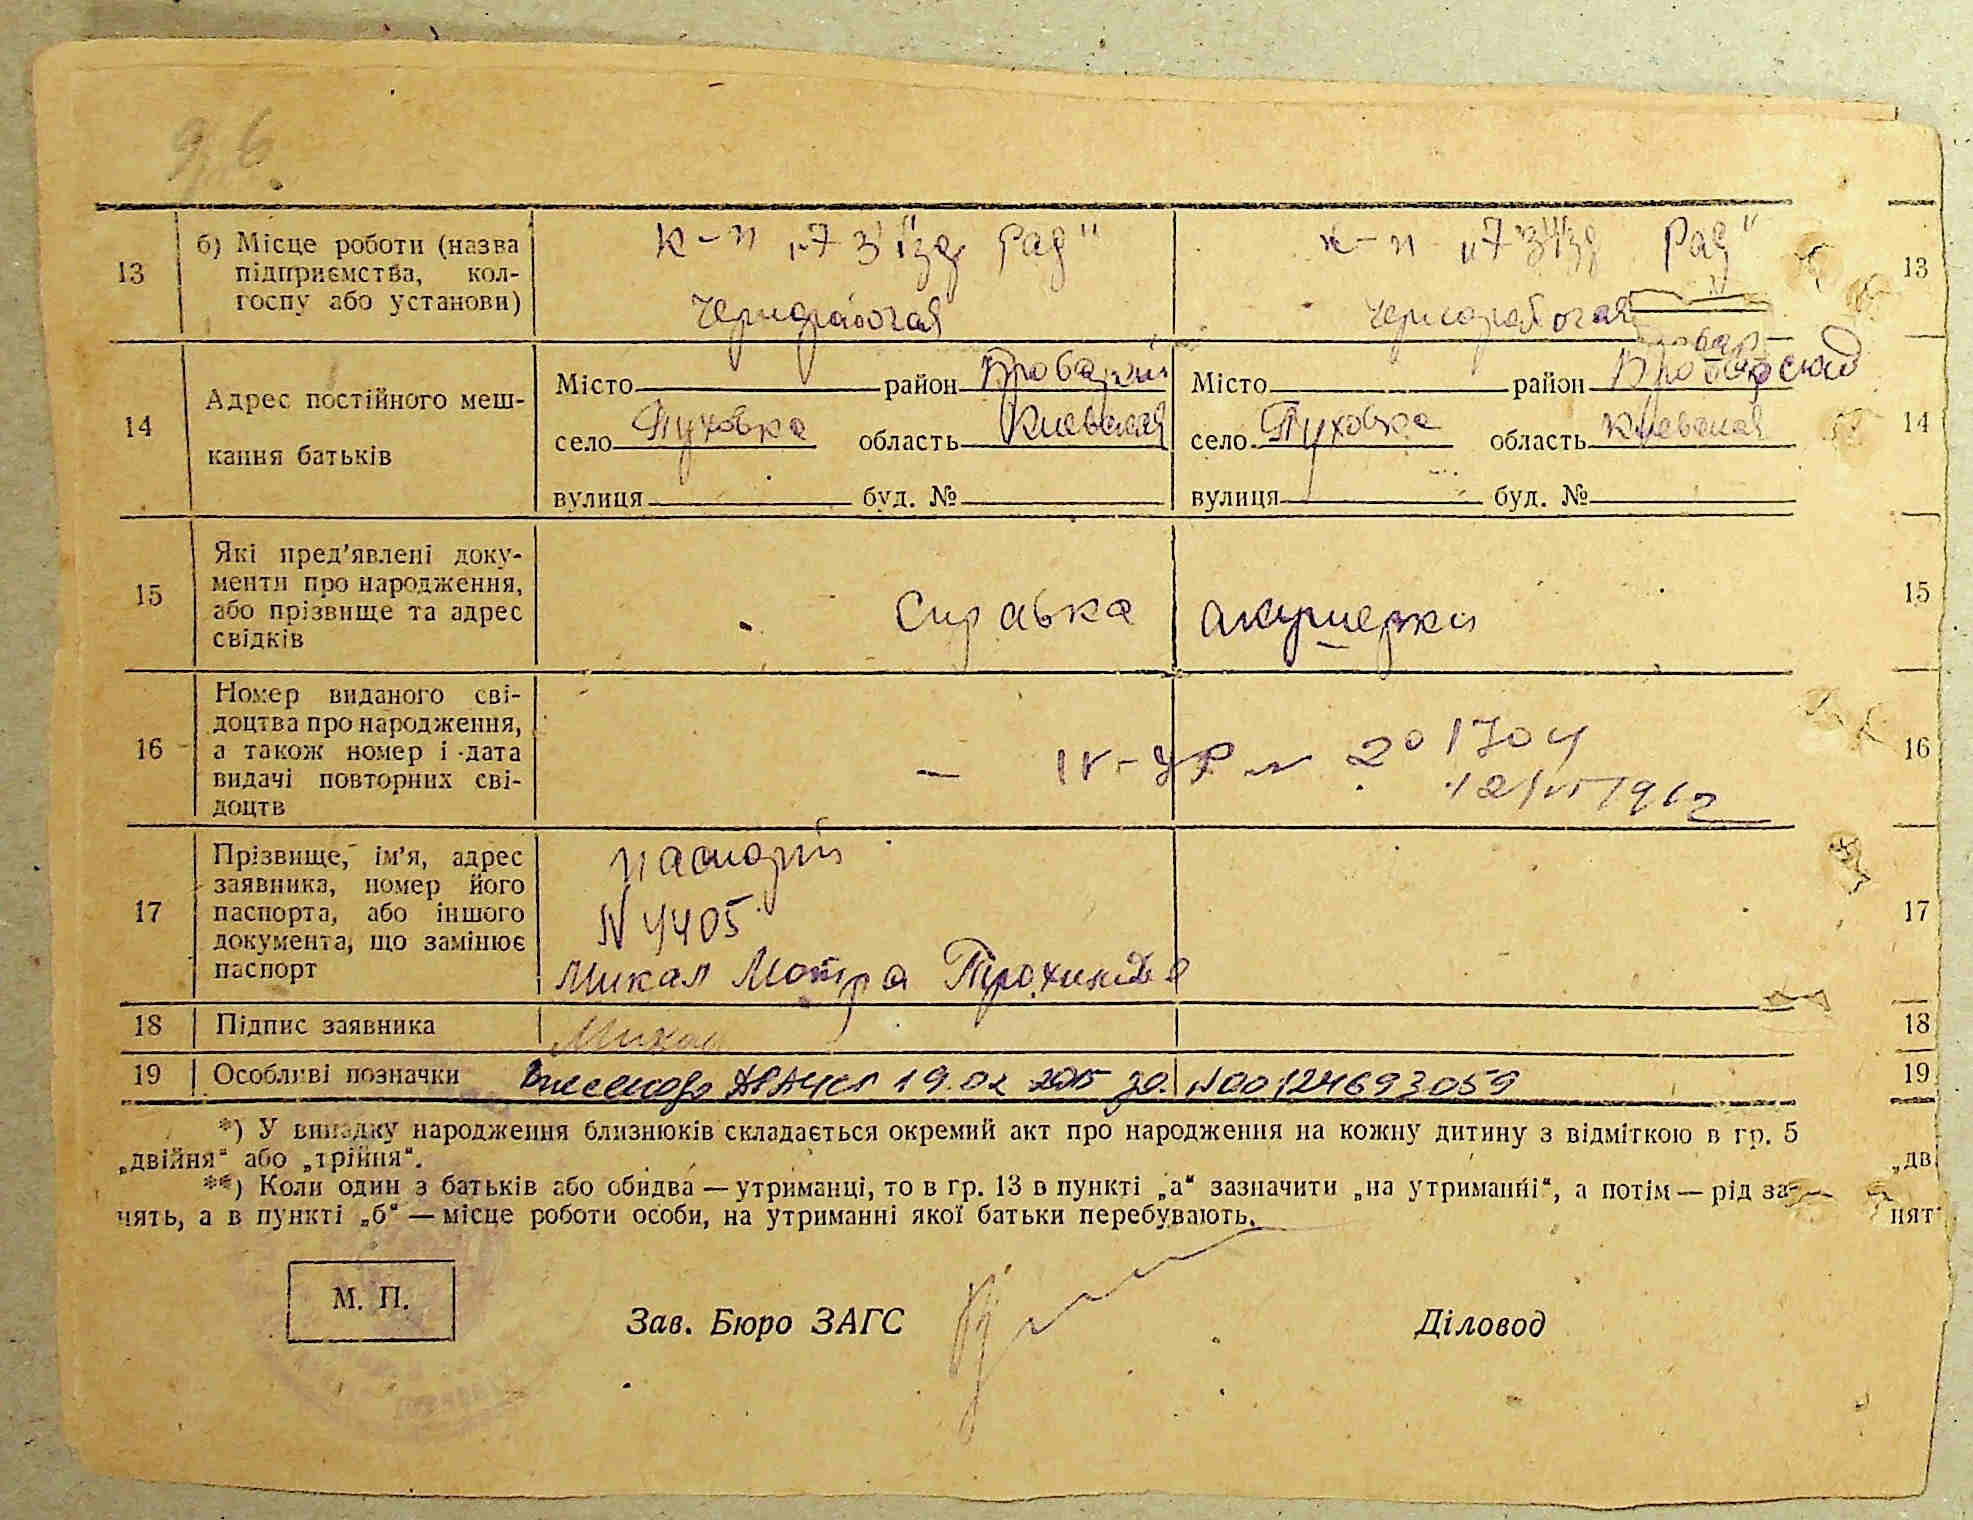 13 б) Місце роботи (назва підприємства, кол-госпу або установи) к-п „7 з'їзд Рад" к-п „7 з'їзд Рад" 13
чернорабочая чернорабочая
14 Адрес постійного меш- Місто район Броварский Місто район Броварский 14
кання батьків село Пуховка область Киевская село Пуховка область Киевская
вулиця буд. № вулиця буд. №
15 Які пред'явлені доку- 15
менти про народження,
або прізвище та адрес Справка акушерки
свідків
16 Номер виданого сві- 16
доцтва про народження,
а також номер і дата — IV-УР № 201704
видачі повторних сві- 12/VI 1962
доцтв
17 Прізвище, ім'я, адрес паспорт 17
заявника, номер його
паспорта, або іншого N 4405
документа, що замінює
паспорт Микал Мотра Трохимовна
18 Підпис заявника Микал 18
19 Особливі позначки Внесено до ДРАЦСГ 19.02 2015 за N00124693059 19
*) У випадку народження близнюків складається окремий акт про народження на кожну дитину з відміткою в гр. 5
„двійня" або „трійня". „дв
**) Коли один з батьків або обидва — утриманці, то в гр. 13 в пункті „а" зазначити „на утриманні", а потім — рід за-
нять, а в пункті „б" — місце роботи особи, на утриманні якої батьки перебувають. нят
М. П.
Зав. Бюро ЗАГС Діловод